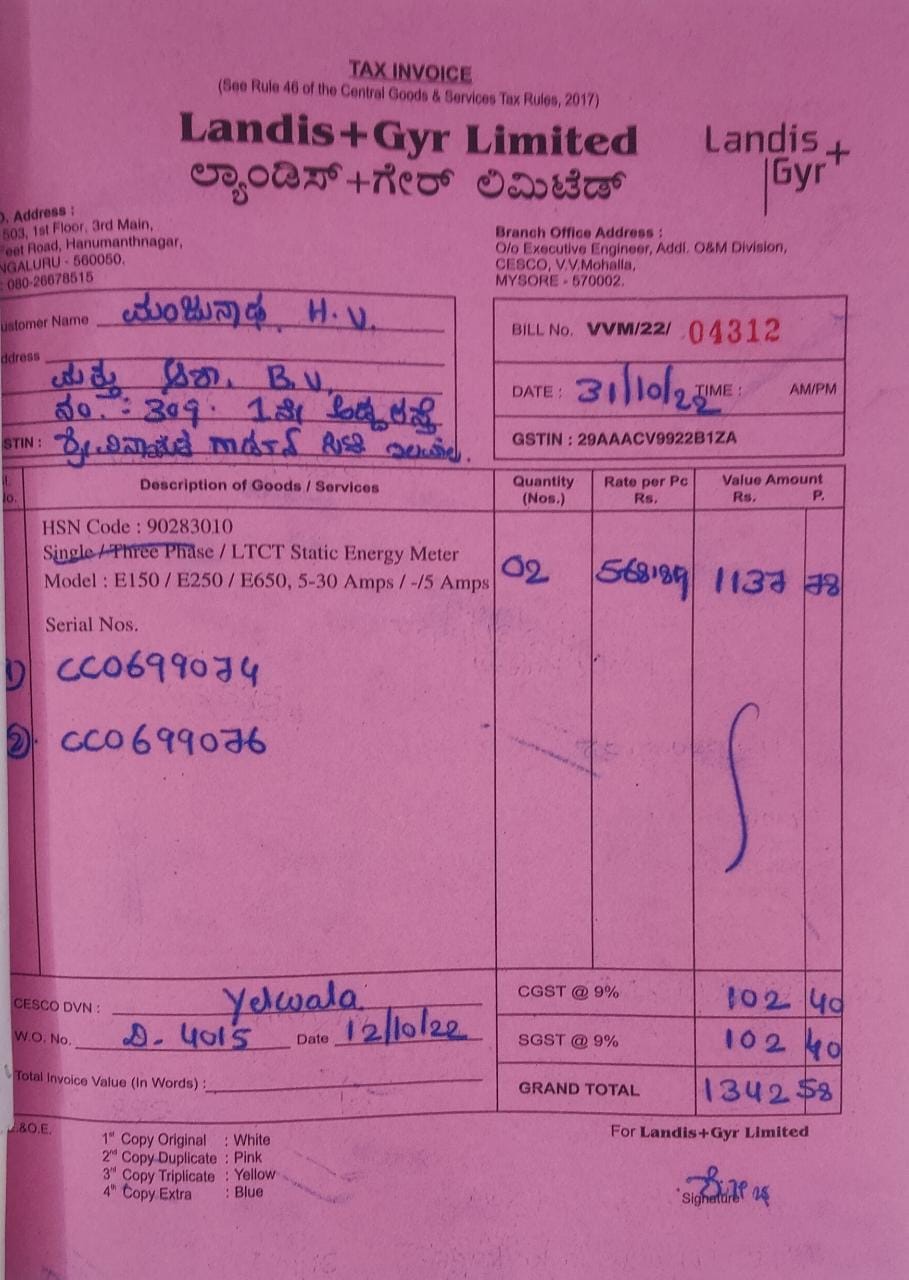 TAX INVOICE
(See Rule 46 of the Central Goods & Services Tax Rules, 2017)
Landis+Gyr Limited
ಲ್ಯಾಂಡಿಸ್+ಗೇರ್ ಲಿಮಿಟೆಡ್
Landis+
Gyr
Address :
503, 1st Floor, 3rd Main,
Road, Hanumanthnagar,
560050.
080-26678515
Branch Office Address :
O/o Executive Engineer, Addl. O&M Division,
CESCO, V.V.Mohalla,
MYSORE - 570002.
Name ಮಂಜುನಾಥ H.V.
ಮತ್ತು ಆಶಾ. B.V.
ನಂ.: 309. 1ನೇ
BILL No. VVM/22/ 04312
DATE : 31/10/22 TIME : AM/PM
GSTIN : 29AAACV9922B1ZA
Description of Goods / Services
Quantity (Nos.)
Rate per Pc Rs.
Value Amount Rs. P.
HSN Code : 90283010
Single / Three Phase / LTCT Static Energy Meter
Model : E150 / E250 / E650, 5-30 Amps / -/5 Amps
02 568.89 1137 78
Serial Nos.
1) CC0699074
2) CC0699076
CESCO DVN : Yelwala
W.O. No. D- 4015 Date 12/10/22
Total Invoice Value (In Words) :
CGST @ 9% 102 40
SGST @ 9% 102 40
GRAND TOTAL 1342 58
&O.E.
1st Copy Original : White
2nd Copy Duplicate : Pink
3rd Copy Triplicate : Yellow
4th Copy Extra : Blue
For Landis+Gyr Limited
Signature